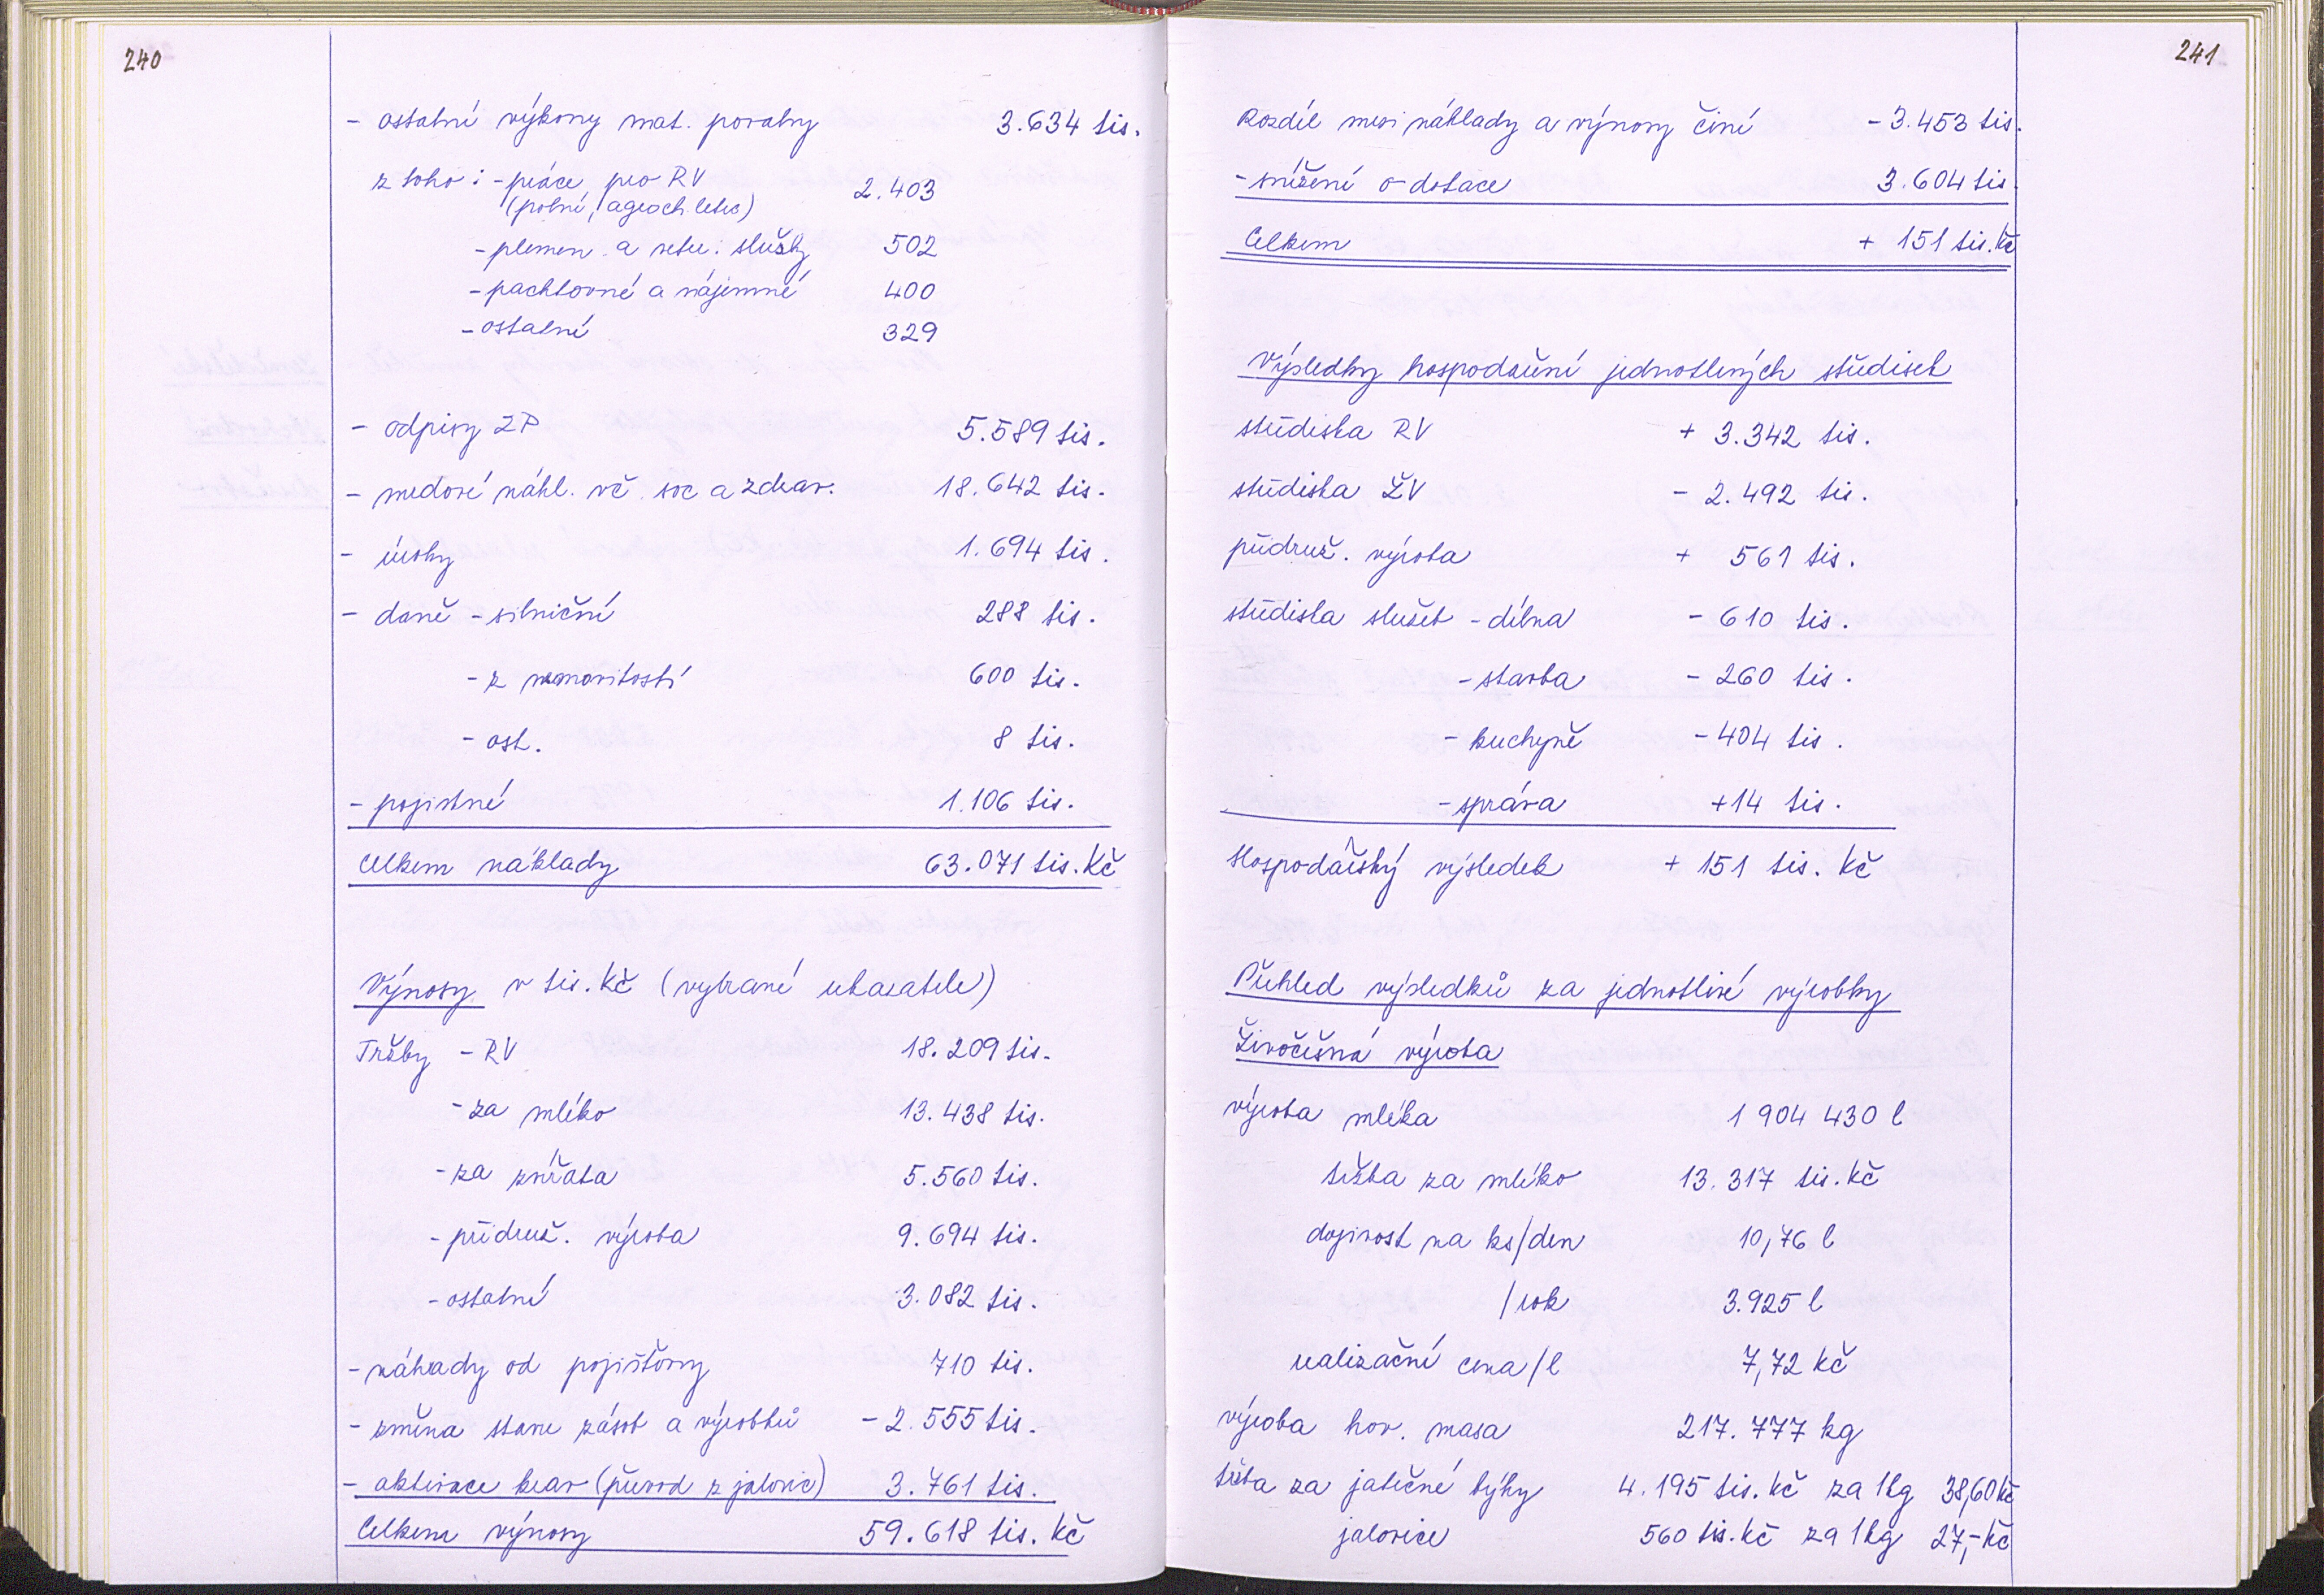 240
- ostatní výkony mat. povahy 3.634 tis.
z toho: - práce pro RV 2.403
(polní, agroch. letec)
- plemen. a veter. služby 502
- pachtovné a nájemné 400
- ostatní 329
- odpisy ZP 5.589 tis.
- mzdové nákl. vč. soc a zdrav. 18.642 tis.
- úroky 1.694 tis.
- daně - silniční 288 tis.
- z nemovitostí 600 tis.
- ost. 8 tis.
- pojistné 1.106 tis.
Celkem náklady 63.071 tis. Kč
Výnosy v tis. Kč (vybrané ukazatele)
Tržby - RV 18.209 tis.
- za mléko 13.438 tis.
- za zvířata 5.560 tis.
- přidruž. výroba 9.694 tis.
- ostatní 3.082 tis.
- náhrady od pojišťovny 710 tis.
- změna stavu zásob a výrobků - 2.555 tis.
- aktivace krav (převod z jalovic) 3.761 tis.
Celkem výnosy 59.618 tis. Kč
241
Rozdíl mezi náklady a výnosy činí - 3.453 tis.
- snížení o dotace 3.604 tis.
Celkem + 151 tis. Kč
Výsledky hospodaření jednotlivých středisek
střediska RV + 3.342 tis.
střediska ŽV - 2.492 tis.
přidruž. výroba + 561 tis.
střediska služeb - dílna - 610 tis.
- stavba - 260 tis.
- kuchyně - 404 tis.
- správa +14 tis.
Hospodářský výsledek + 151 tis. Kč
Přehled výsledků za jednotlivé výrobky
Živočišná výroba
výroba mléka 1 904 430 l
tržba za mléko 13.317 tis. Kč
dojivost na ks/den 10,76 l
/rok 3.925 l
realizační cena/l 7,72 Kč
výroba hov. masa 217.777 kg
tržba za jatečné býky 4.195 tis. Kč za 1kg 38,60 Kč
jalovice 560 tis. Kč za 1kg 27,- Kč